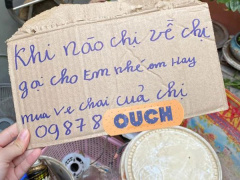 Khi nào chị về chị
gọi cho Em nhé em Hay
mua ve chai của chị
09878 OUCH